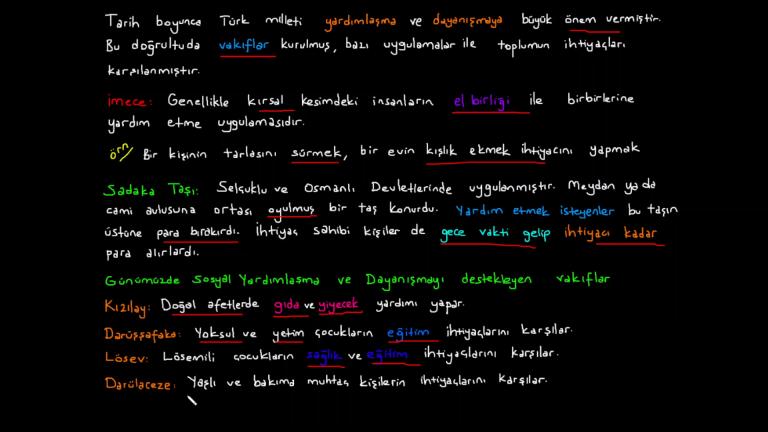 Tarih boyunca Türk milleti yardımlaşma ve dayanışmaya büyük önem vermiştir.
Bu doğrultuda vakıflar kurulmuş, bazı uygulamalar ile toplumun ihtiyaçları
karşılanmıştır.
İmece: Genellikle kırsal kesimdeki insanların el birliği ile birbirlerine
yardım etme uygulamasıdır.
örn/ Bir kişinin tarlasını sürmek, bir evin kışlık ekmek ihtiyacını yapmak
Sadaka Taşı: Selçuklu ve Osmanlı Devletlerinde uygulanmıştır. Meydan ya da
cami avlusuna ortası oyulmuş bir taş konurdu. Yardım etmek isteyenler bu taşın
üstüne para bırakırdı. İhtiyaç sahibi kişiler de gece vakti gelip ihtiyacı kadar
para alırlardı.
Günümüzde Sosyal Yardımlaşma ve Dayanışmayı destekleyen vakıflar
Kızılay: Doğal afetlerde gıda ve yiyecek yardımı yapar.
Darüşşafaka: Yoksul ve yetim çocukların eğitim ihtiyaçlarını karşılar.
Lösev: Lösemili çocukların sağlık ve eğitim ihtiyaçlarını karşılar.
Darülaceze: Yaşlı ve bakıma muhtaç kişilerin ihtiyaçlarını karşılar.